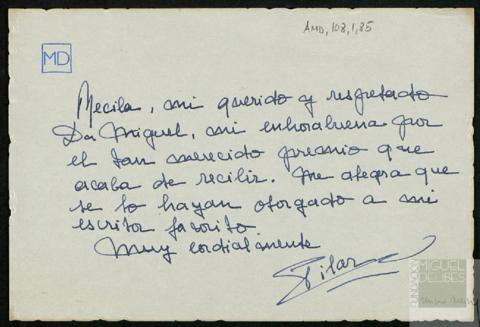 AMD, 108, 1, 85
MD
Reciba, mi querido y respetado
Don Miguel, mi enhorabuena por
el tan merecido premio que
acaba de recibir. Me alegra que
se lo hayan otorgado a mi
escritor favorito.
Muy cordialmente
Pilar
FUNDACIÓN
MIGUEL
DELIBES